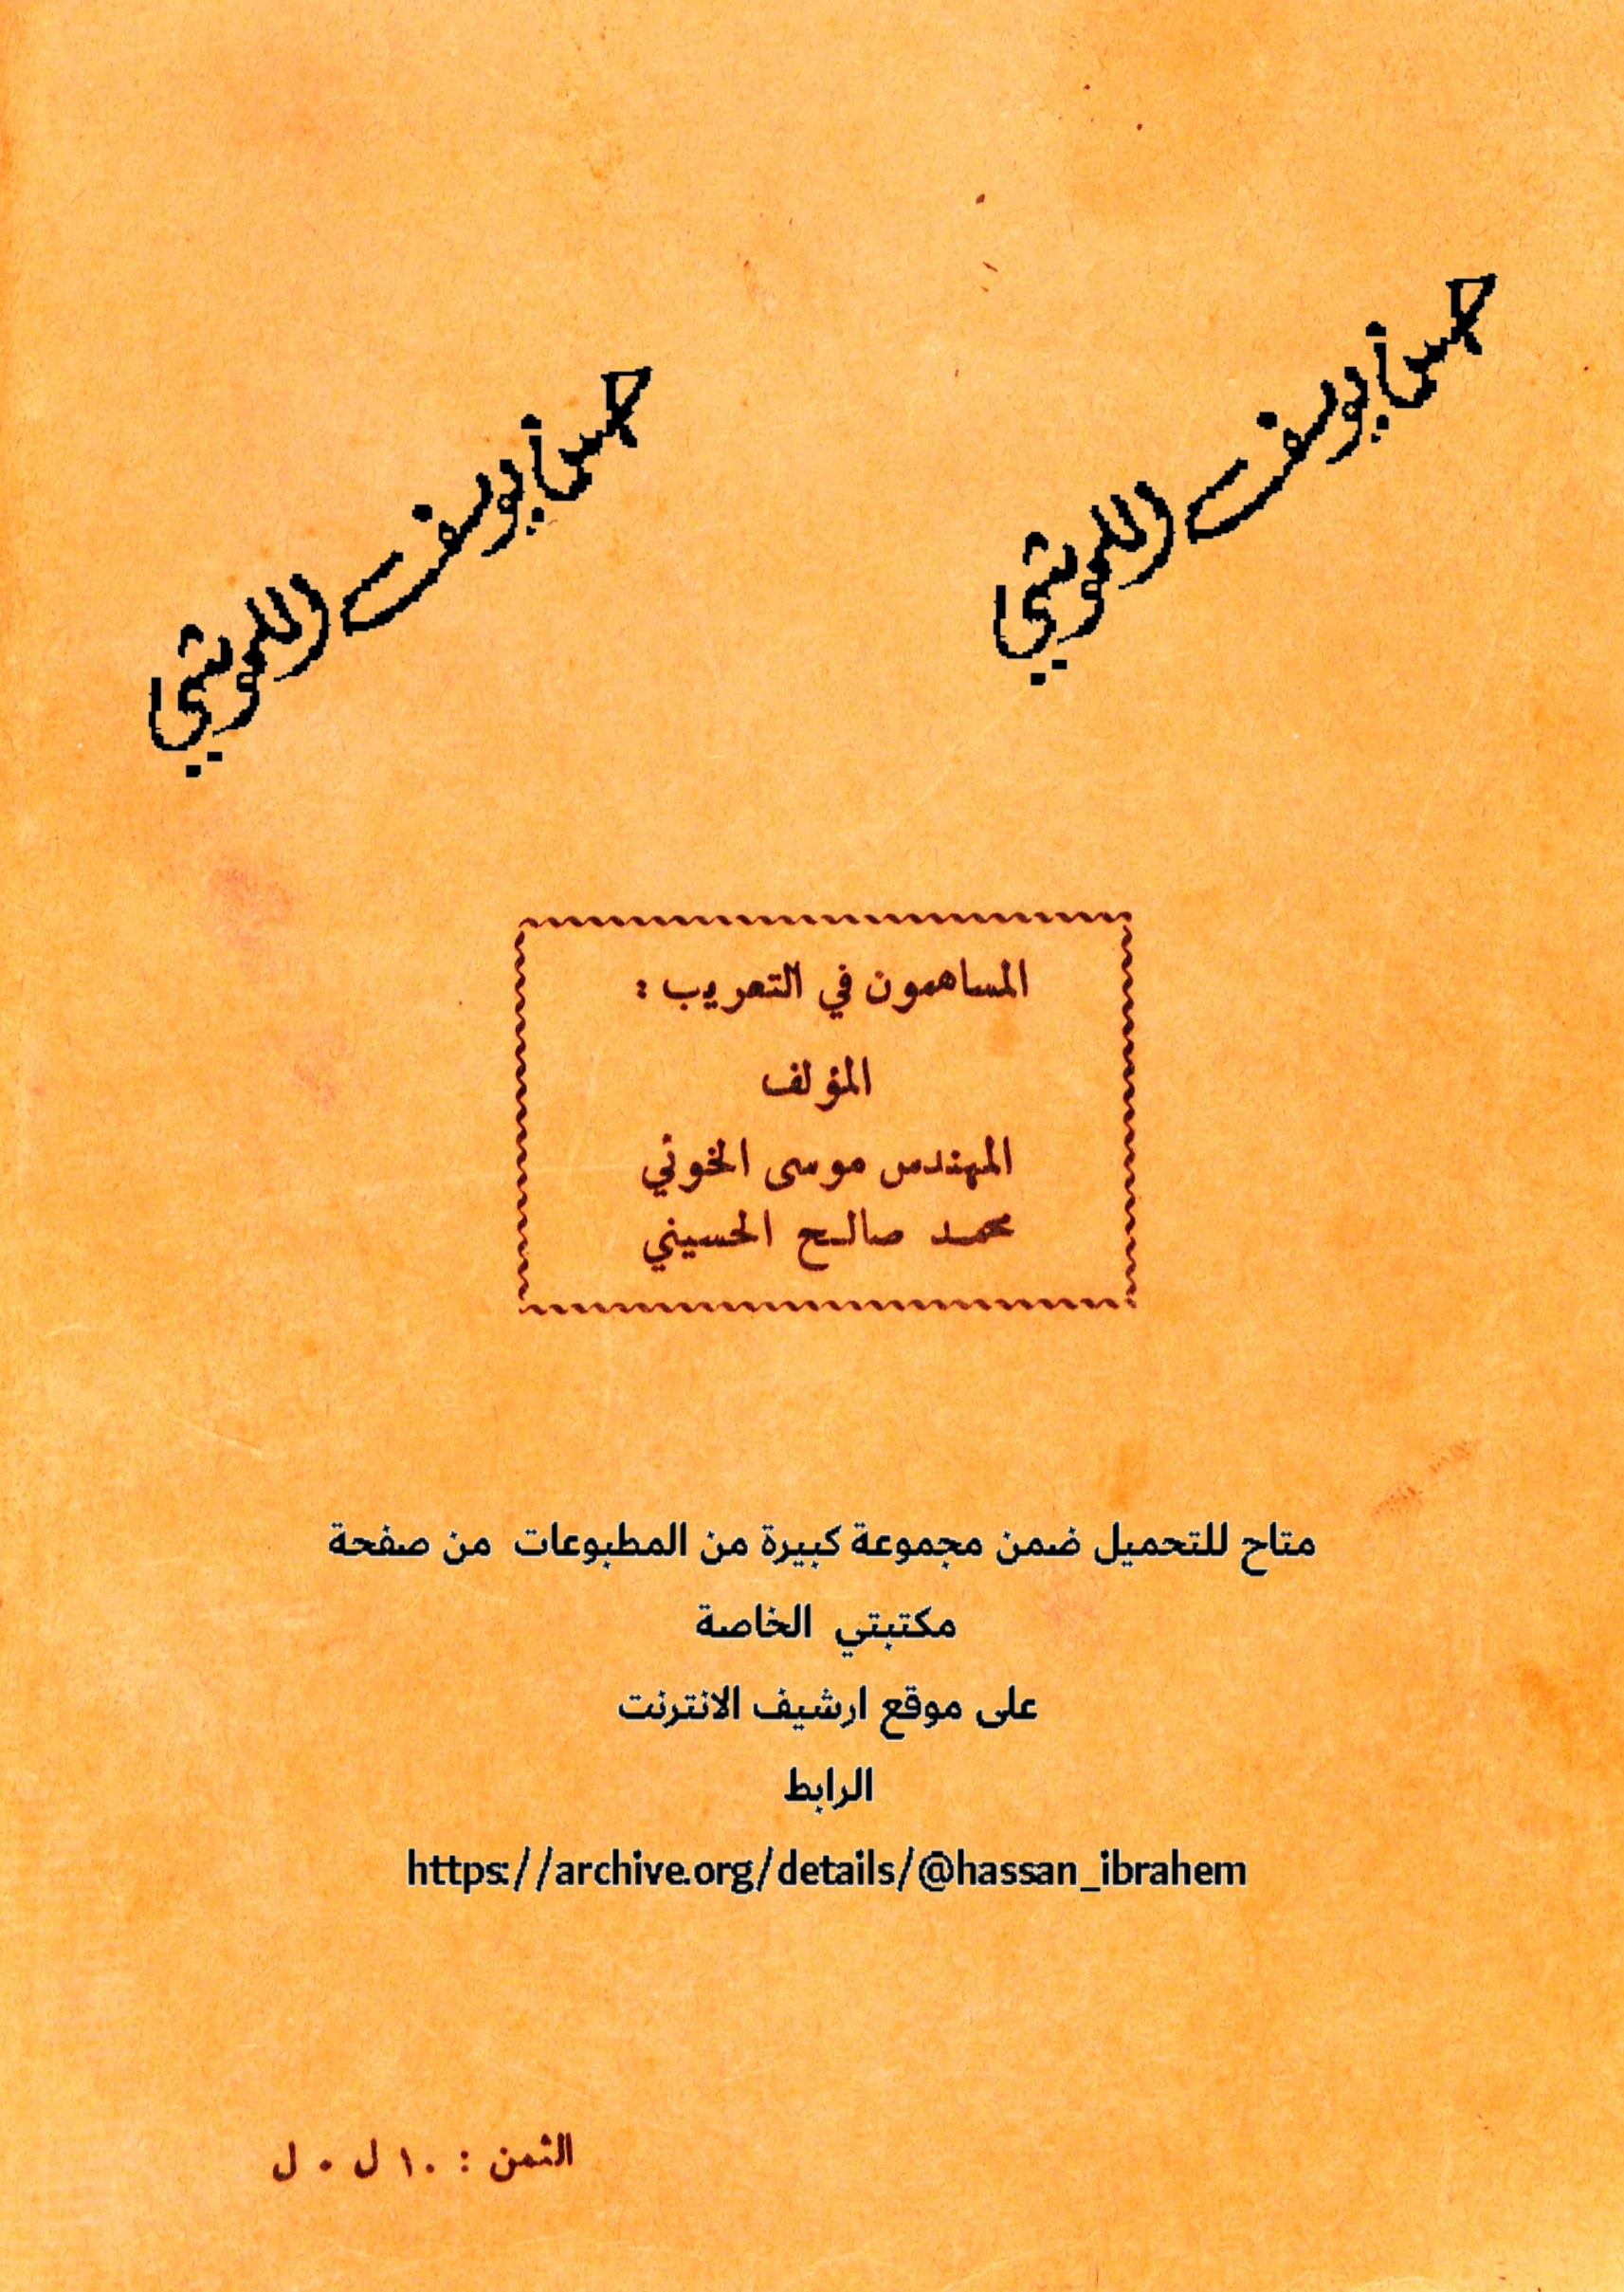 حسن يوسف اللموشي
حسن يوسف اللموشي
المساهمون في التعريب :
المؤلف
المهندس موسى الخوئي
محمد صالح الحسيني
متاح للتحميل ضمن مجموعة كبيرة من المطبوعات من صفحة
مكتبتي الخاصة
على موقع ارشيف الانترنت
الرابط
https://archive.org/details/@hassan_ibrahem
الثمن : ١٠ ل ٠ ل